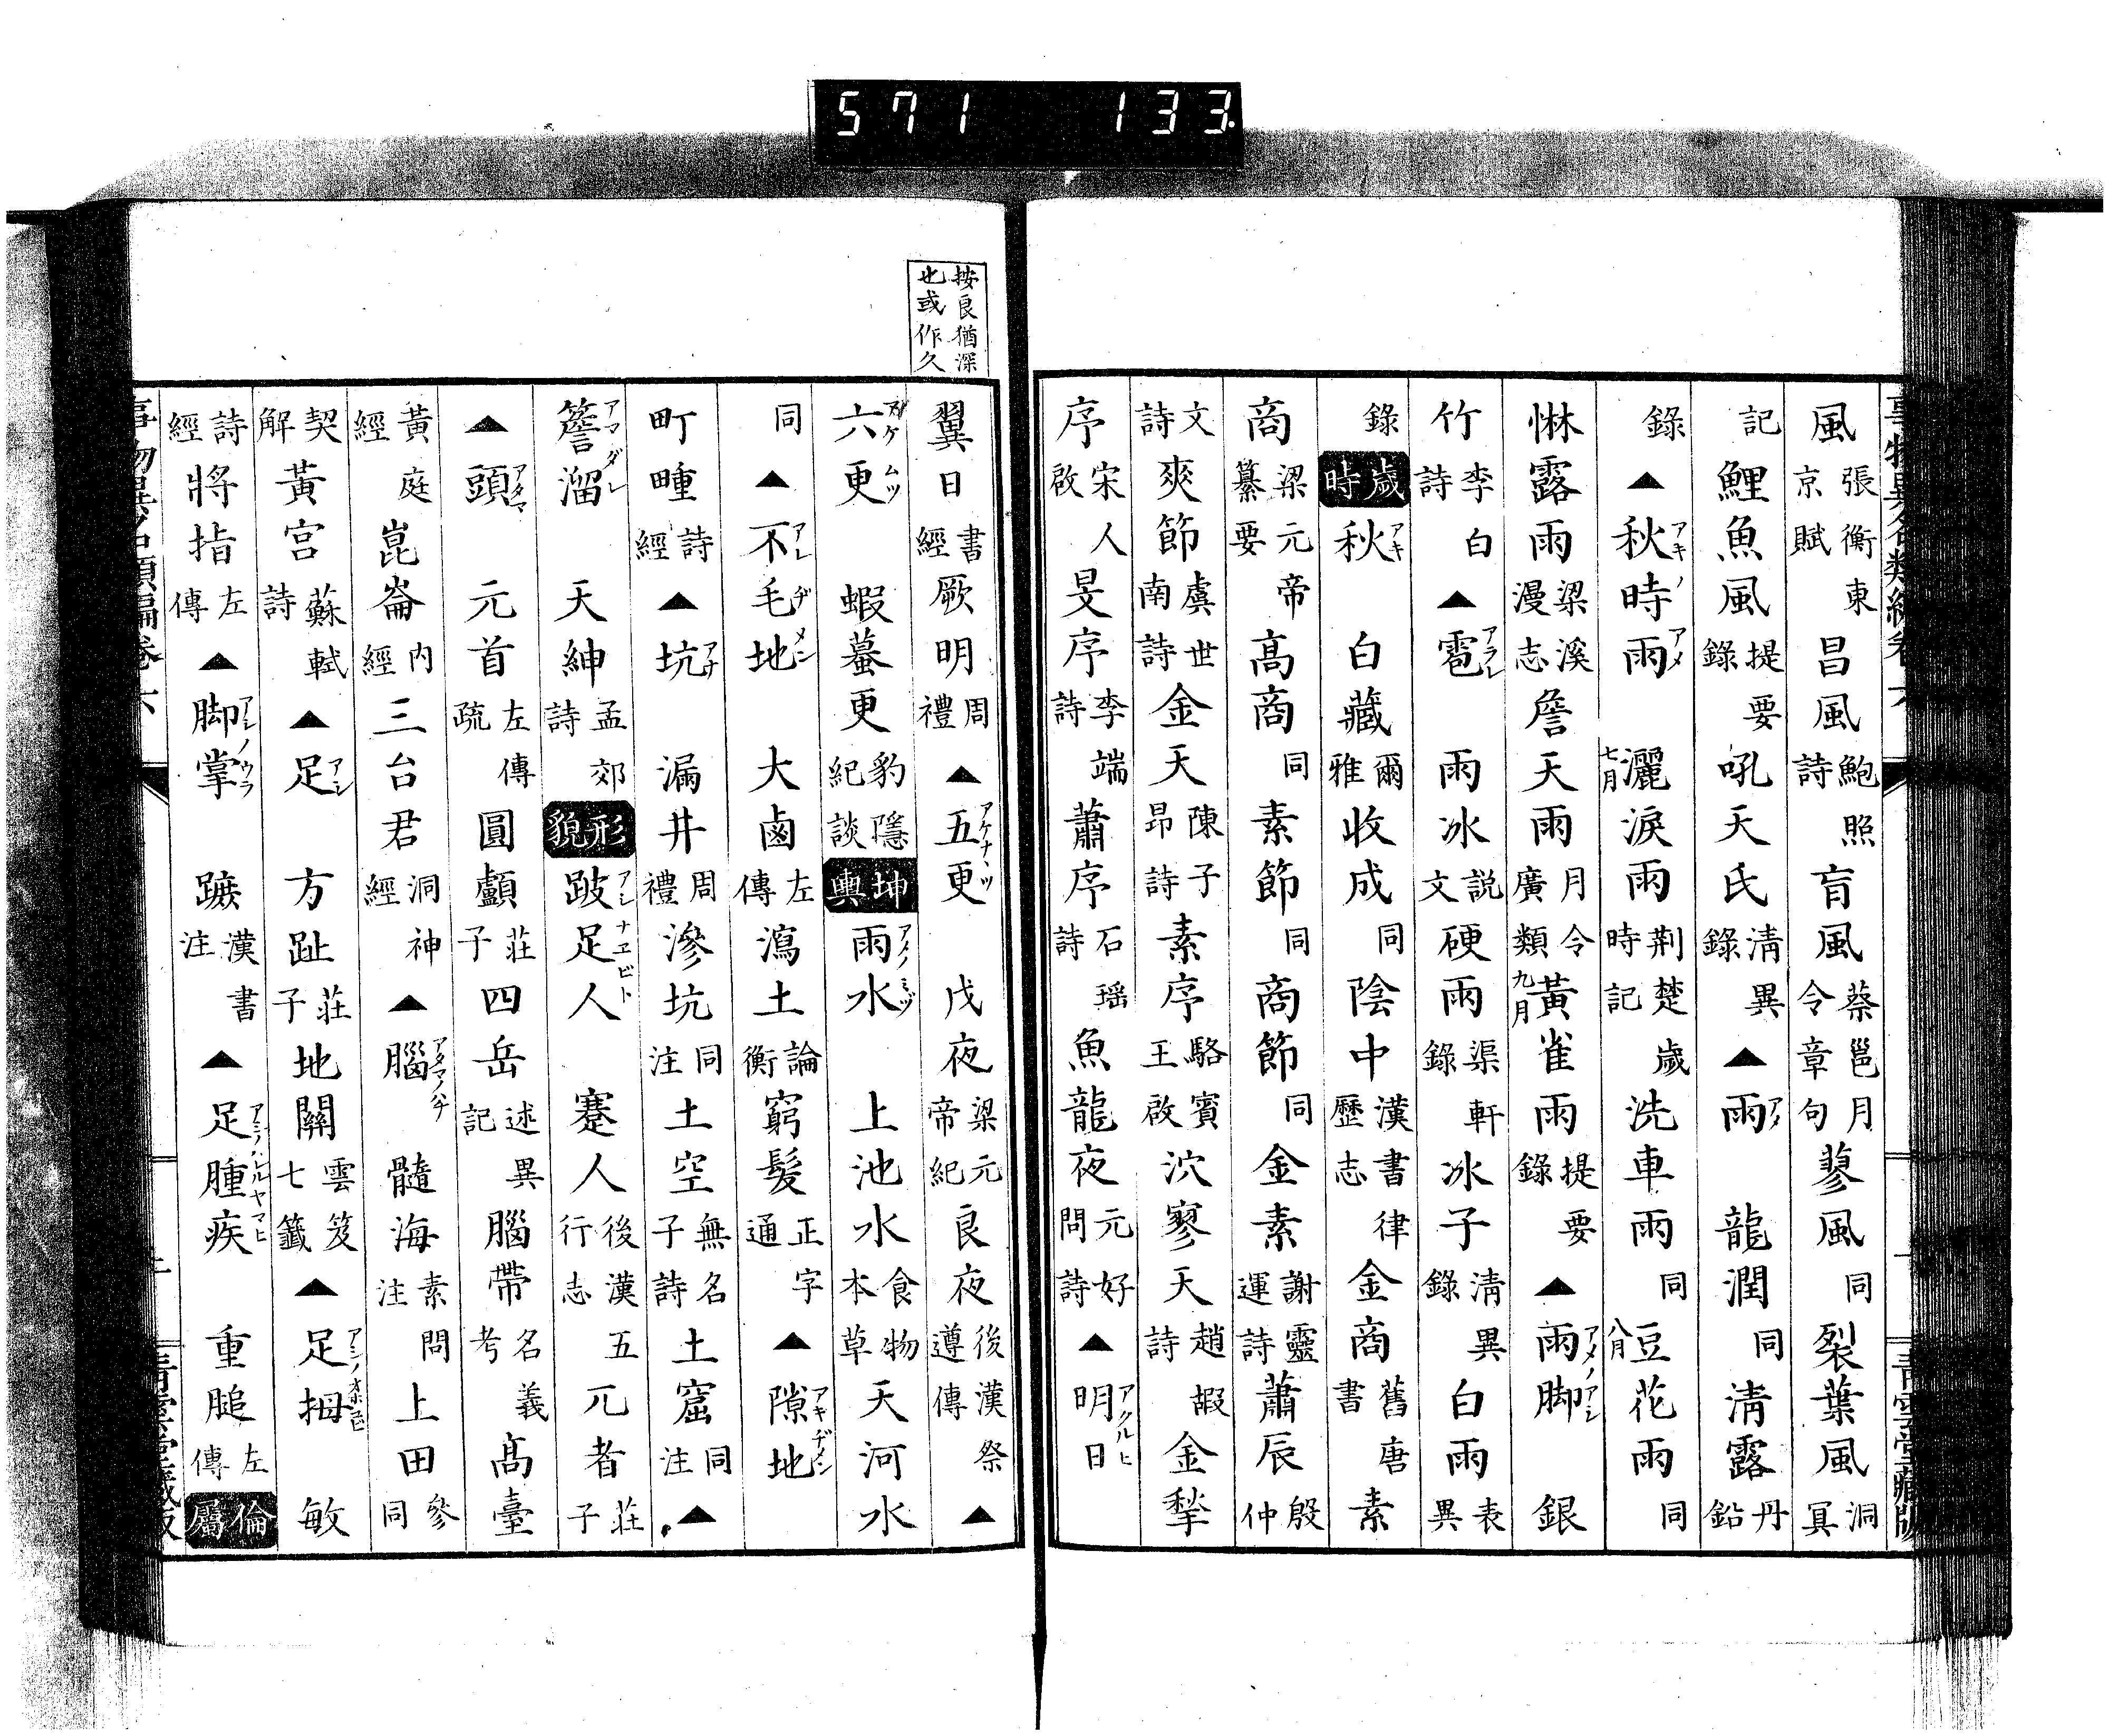 571 133.
風張衡東京賦昌風鮑照詩盲風蔡邕月令章句蓼風同裂葉風洞冥
記鯉魚風提要錄吼天氏清異錄▲雨アメ龍潤同清露丹鉛
錄▲秋時雨アキノアメ七月灑淚雨荆楚歲時記洗車雨同八月豆花雨同
惏露雨梁溪漫志詹天雨月令廣類九月黃雀雨提要錄▲雨脚アメノアシ銀
竹李白詩▲雹アラレ雨冰說文硬雨渠軒錄冰子清異錄白雨表異
錄歲時秋アキ白藏爾雅收成同陰中漢書律歷志金商舊唐書素
商梁元帝纂要高商同素節同商節同金素謝靈運詩蕭辰殷仲
文詩爽節虞世南詩金天陳子昂詩素序駱賓王啟泬寥天趙嘏詩金犂
序宋人啟旻序李端詩蕭序石瑶詩魚龍夜元好問詩▲明日アクルヒ
按良猶深
也或作久
翼日書經厥明周禮▲五更アケナヽツ戊夜梁元帝紀良夜後漢祭遵傳▲
六更アケムツ蝦蟇更豹隱紀談坤輿雨水アメノミヅ上池水食物本草天河水
同▲不毛地アレヂメン大鹵左傳瀉土論衡窮髮正字通▲隙地アキヂメン
町畽詩經▲坑アナ漏井周禮滲坑同注土空無名子詩土窟同注▲
簷溜アマダレ天紳孟郊詩形貌跛足人アシナヱビト蹇人後漢五行志兀者莊子
▲頭アタマ元首左傳疏圓顱莊子四岳述異記腦帶名義考高臺
黃庭經崑崙內經三台君洞神經▲腦アタマノハチ髓海素問注上田參同
契解黃宮蘇軾詩▲足アシ方趾莊子地關雲笈七籤▲足拇アシノオホユビ敏
詩經將指左傳▲脚掌アシノウラ蹠漢書注▲足腫疾アシノハレルヤマヒ重膇左傳倫屬